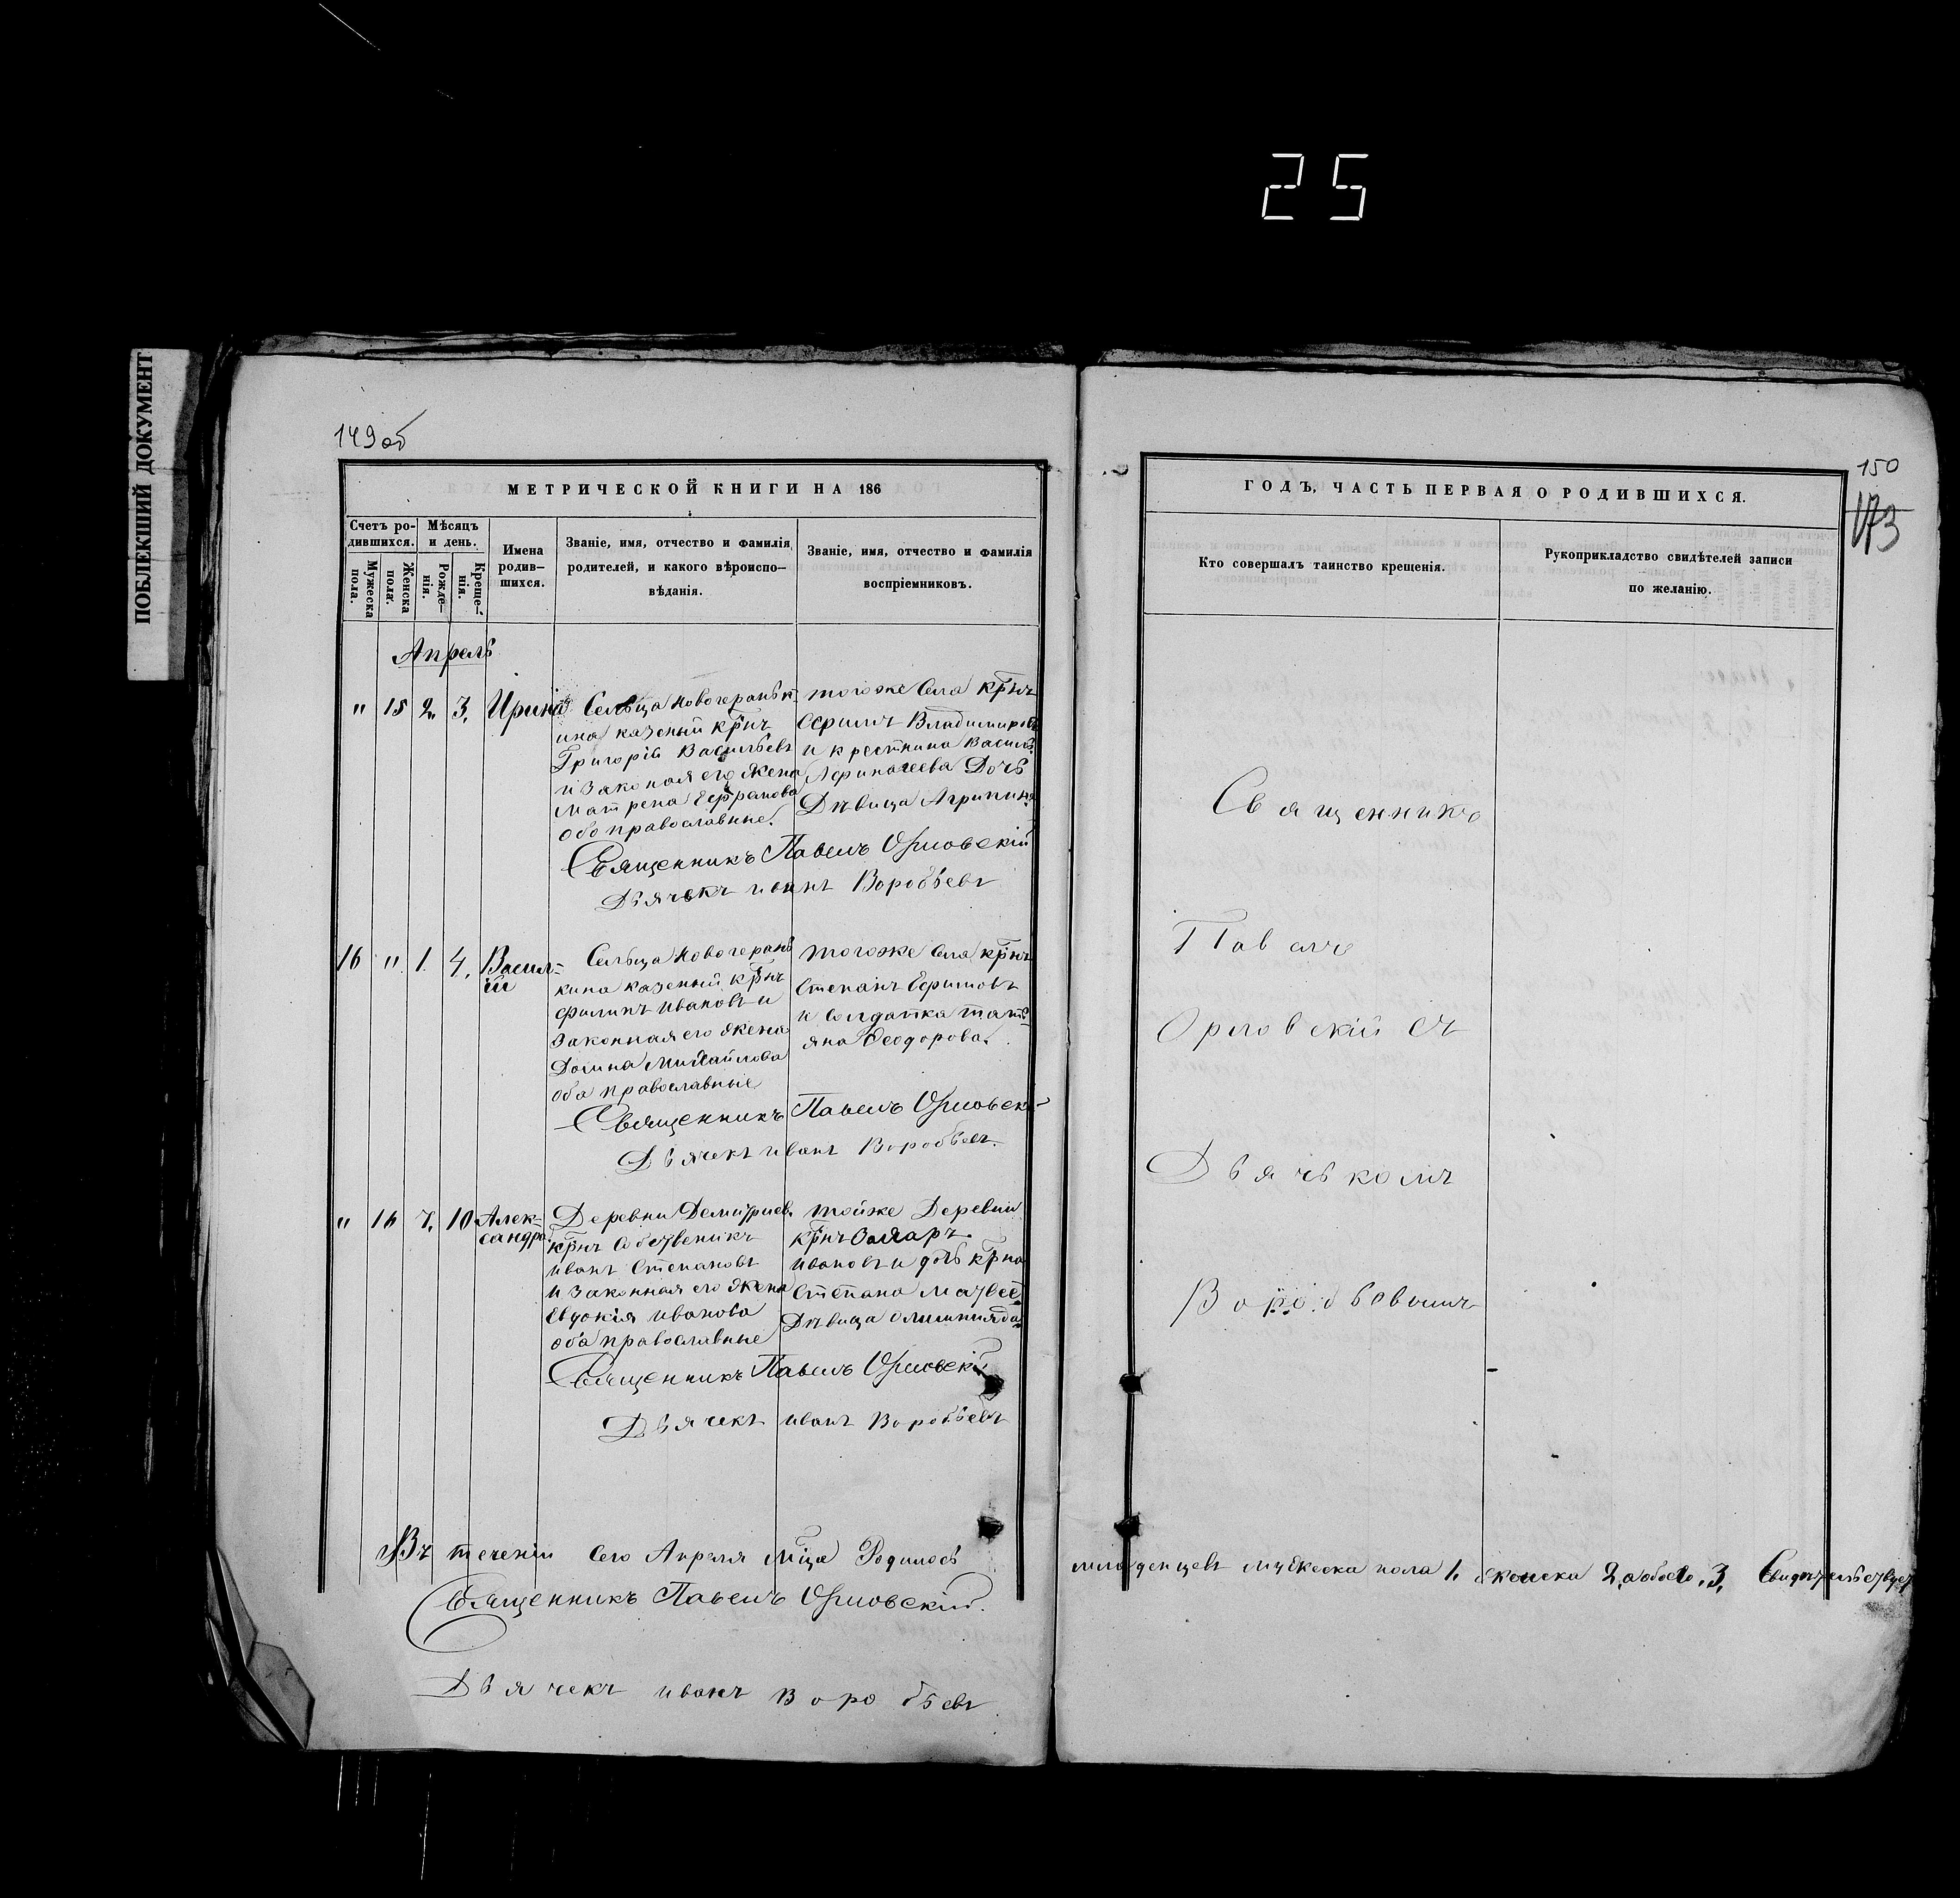 25
ПОБЛЕКШИЙ ДОКУМЕНТ
149 об
МЕТРИЧЕСКОЙ КНИГИ НА 186
Счетъ ро-
дившихся.
Мѣсяцъ
и день.
Мужеска
пола.
Женска
пола.
Рожде-
нія.
Креще-
нія.
Имена
родив-
шихся.
Званіе, имя, отчество и фамилія
родителей, и какого вѣроиспо-
вѣданія.
Званіе, имя, отчество и фамилія
воспріемниковъ.
Апрель
" 15 2 3. Ирина
Сельца
казеный крнъ
Григорій Васильевъ
и законая его жена
Матрена
оба православные.
тогоже села крнъ
Владимировъ
и
Дочь
Дѣвица Агрипина
Священникъ Павелъ Орловскій
Дьячекъ иванъ Воробьевъ
16 " 1. 4. Васил-
ій
Сельца
кина казеный крнъ
филипъ ивановъ и
законная его жена
Михайлова
оба православные
тогоже села крнъ
Степанъ Ефимовъ
и солдатка тать
яна Феодорова.
Священникъ Павелъ Орловск
Дьячекъ иванъ Воробьевъ.
" 16 7. 10 Алек-
сандра
Деревни Демитриев.
крнъ
иванъ Степановъ
и законная его жена
Евдокія иванова
оба православные
тойже Деревни
крнъ
ивановъ и дочь крна
Степана
Дѣвица
Священникъ Павелъ Орловскій
Дьячекъ иванъ Воробьевъ
Въ теченіи сего Апреля мца Родилось
Священникъ Павелъ Орловскій.
Дьячекъ иванъ Воробьевъ
150
173
ГОДЪ, ЧАСТЬ ПЕРВАЯ О РОДИВШИХСЯ.
Кто совершалъ таинство крещенія.
Рукоприкладство свидѣтелей записи
по желанію.
Священникъ
Павелъ
Орловскій съ
Дьячькомъ
Воробьовымъ
младенцевъ мужеска пола 1. женска 2, а обоего 3,